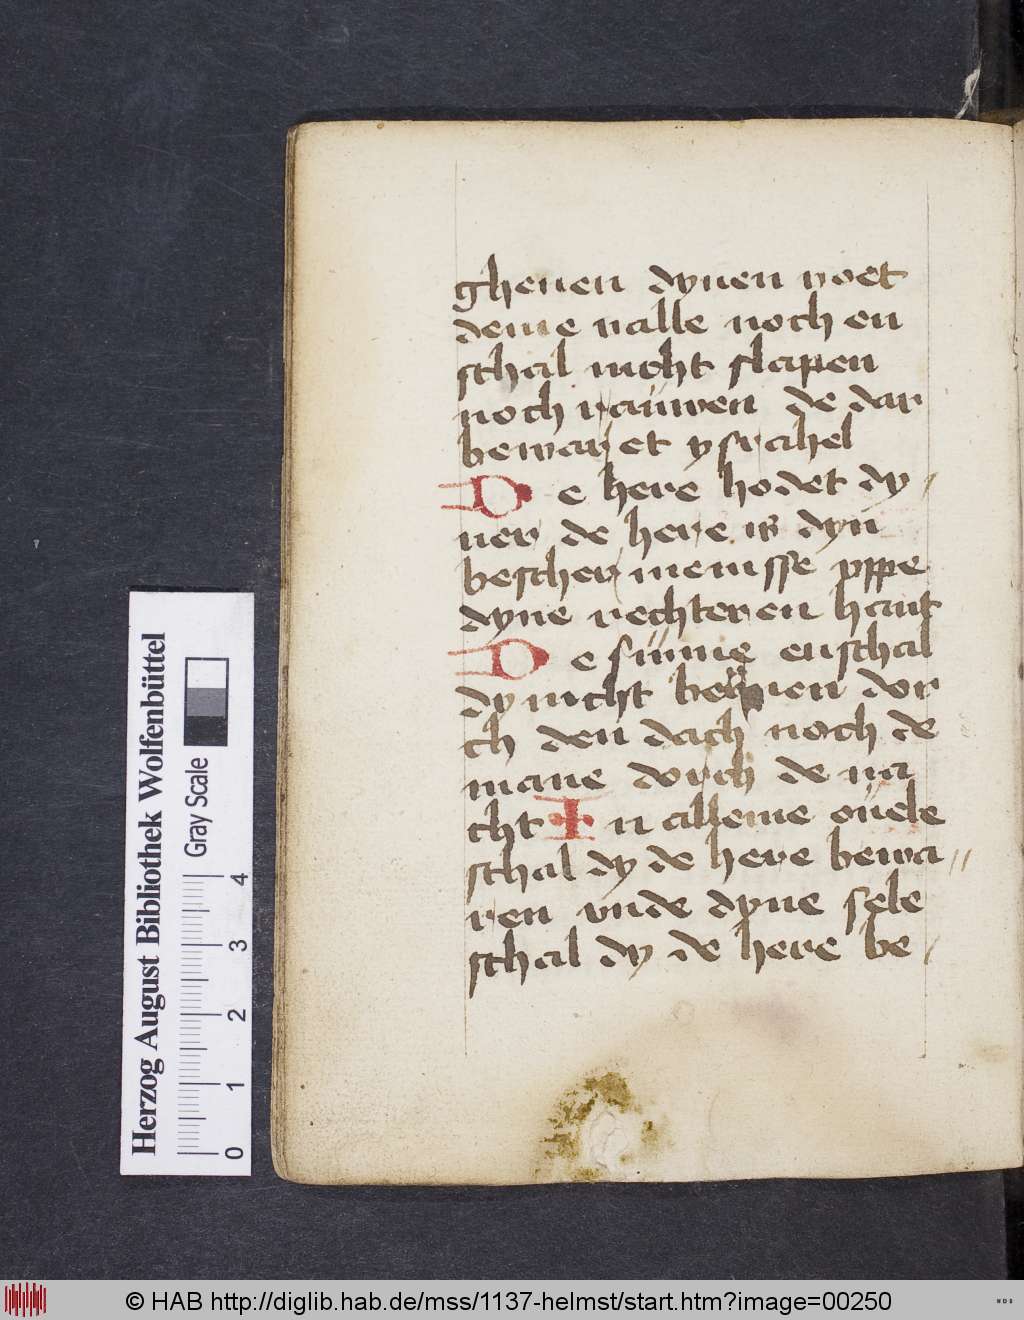 gheuen dynen voet
deme valle noch en
schal nicht slapen
noch rauwen de dar
bewaret ysrahel
De here hodet dy
ner de here is dyn
beschermenisse vppe
dyne rechteren hant
De sunne enschal
dy nicht bernen dor
ch den dach noch de
mane dorch de na
cht In alleme ouele
schal dy de here bewa
ren vnde dyne sele
schal dy de here be
Herzog August Bibliothek Wolfenbüttel
Gray Scale
0 1 2 3 4
© HAB http://diglib.hab.de/mss/1137-helmst/start.htm?image=00250